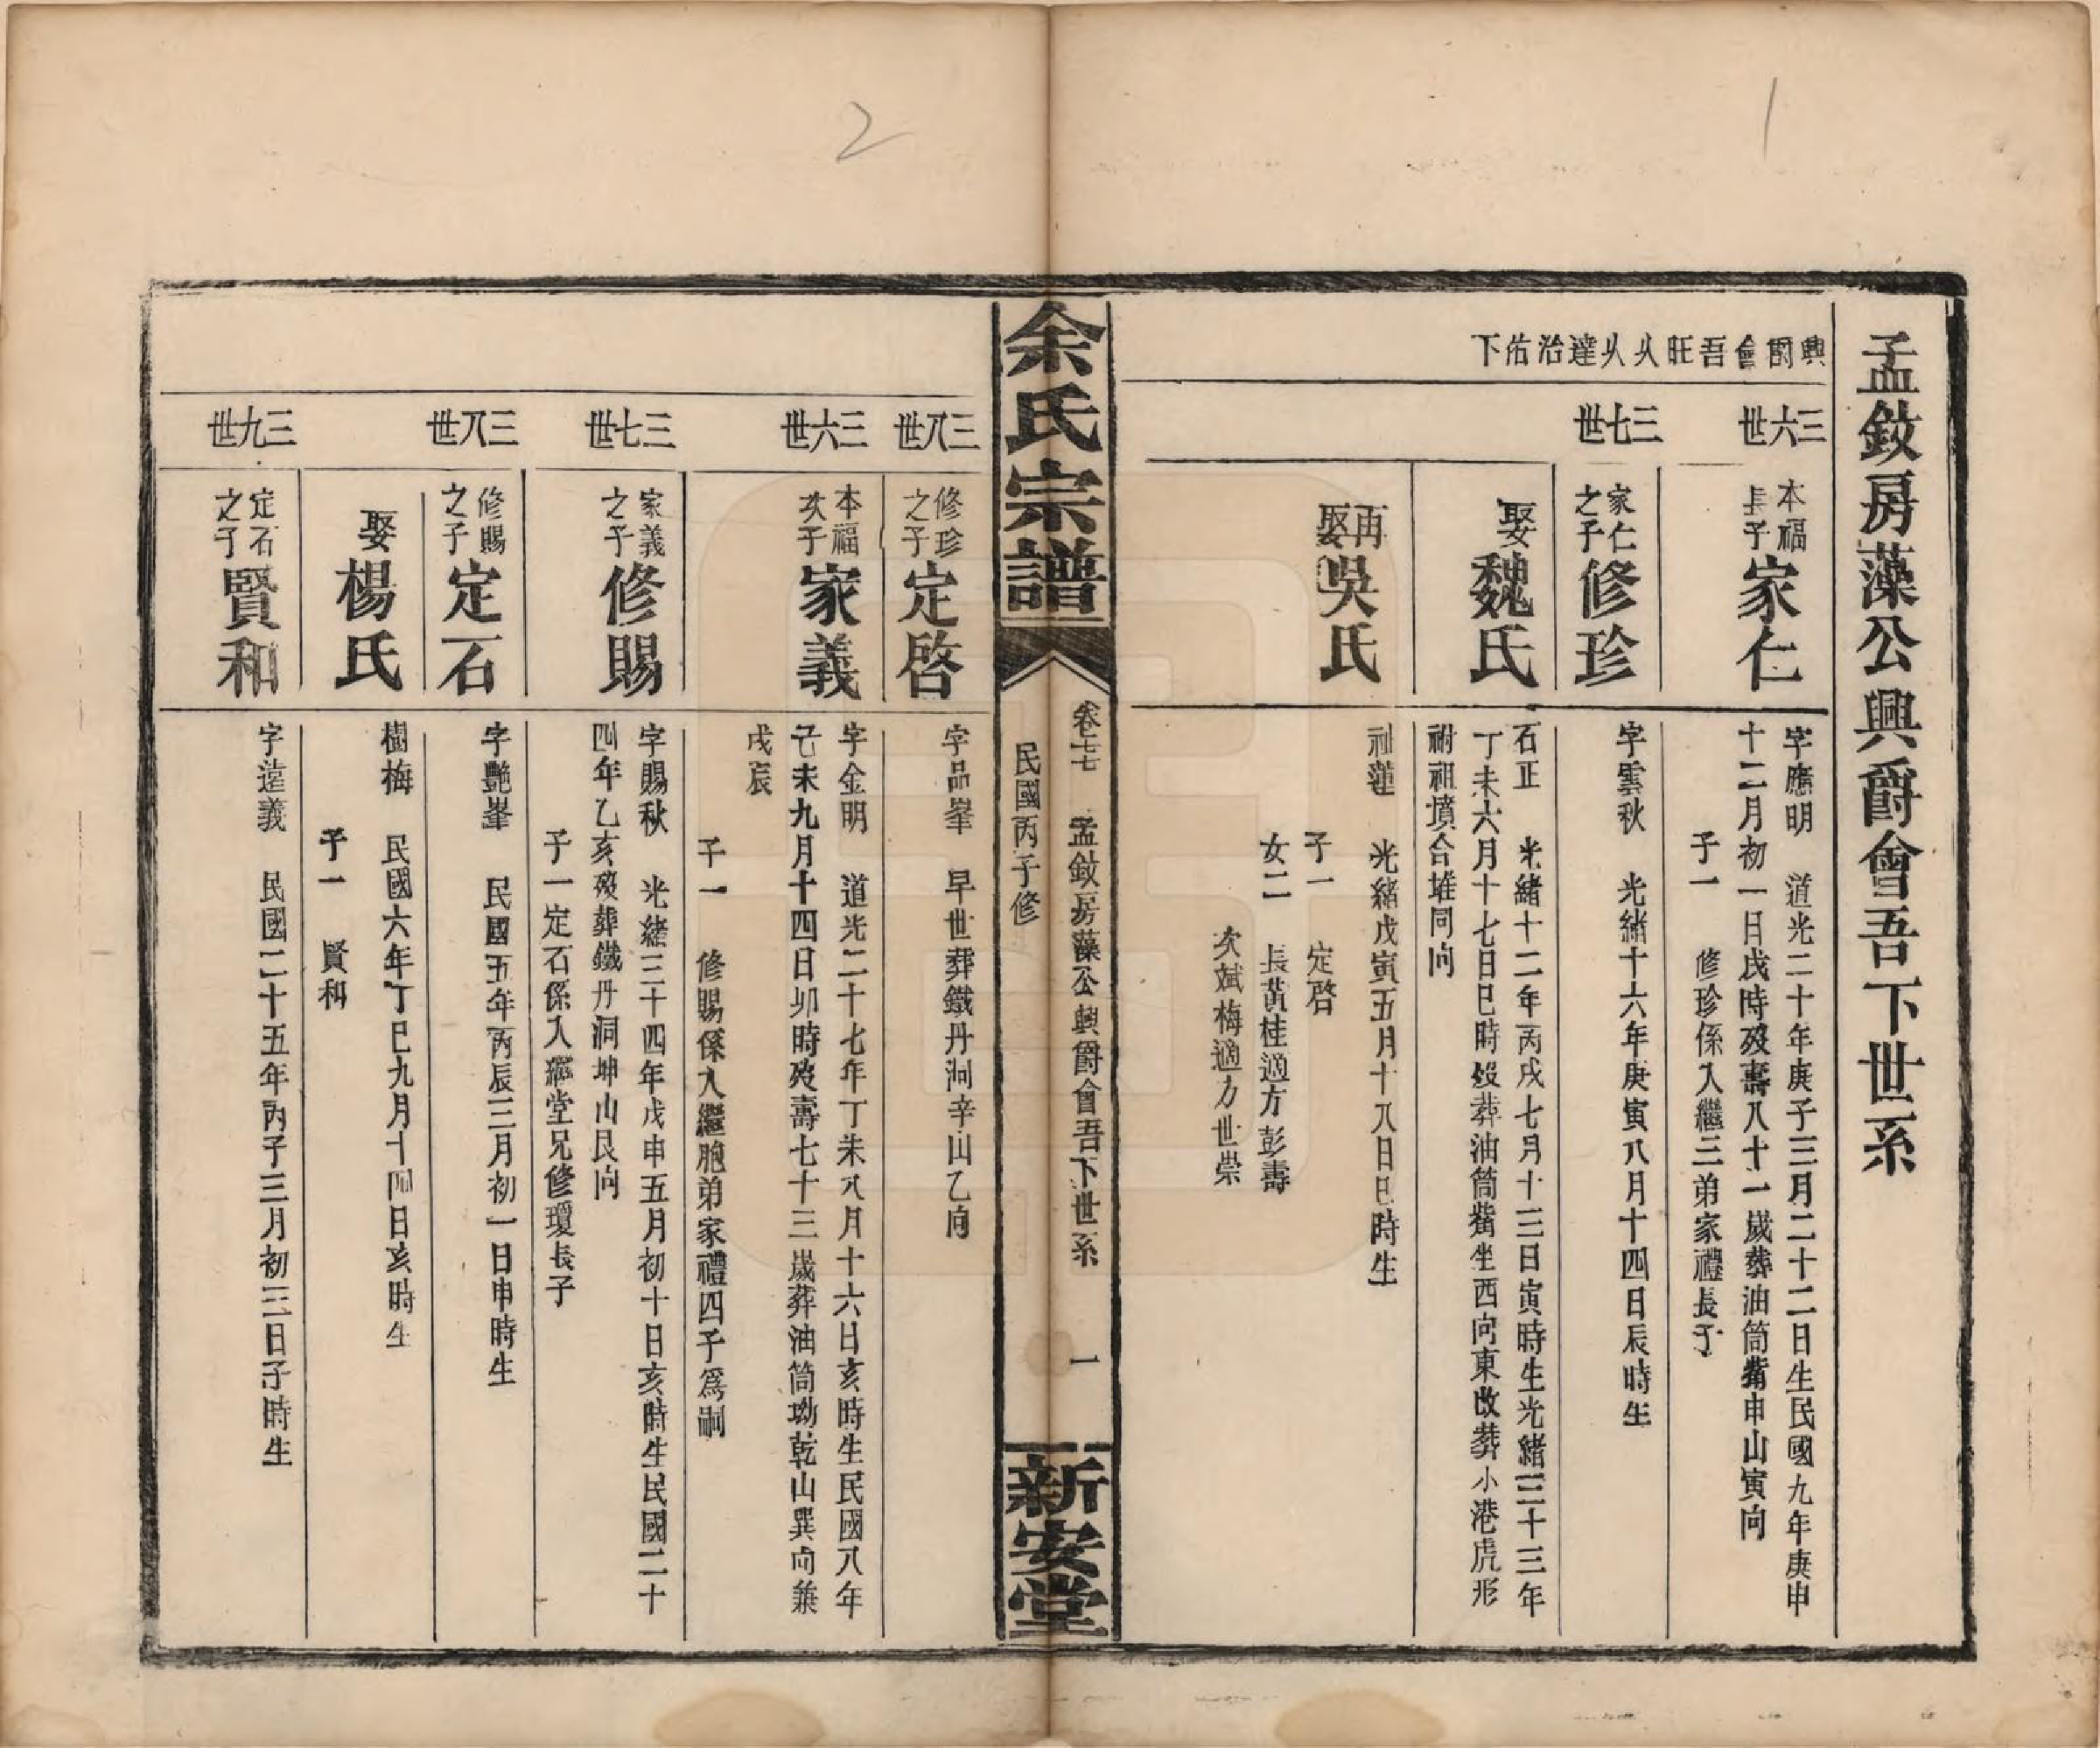 孟鈘房藻公興爵會吾下世系
興爵會吾旺火火達治佑下
三六世
本福長子
家仁
字應明　道光二十年庚子三月二十二日生民國九年庚申
十二月初一日戌時歿壽八十一歲葬油筒觜申山寅向
子一　修珍係入繼三弟家禮長子
三七世
家仁之子
修珍
字雲秋　光緒十六年庚寅八月十四日辰時生
娶
魏氏
石正　光緒十二年丙戌七月十三日寅時生光緒三十三年
丁未六月十七日巳時歿葬油筒觜坐西向東改葬小港虎形
祔祖墳合堆同向
再娶
吳氏
祉蓮　光緒戊寅五月十八日巳時生
子一　定啓
女二　長黃桂適方彭壽
次斌梅適方世崇
余氏宗譜
卷七七　孟鈘房藻公興爵會吾下世系　一
民國丙子修
新安堂
三八世
修珍之子
定啓
字品峯　早世葬鐵丹洞辛山乙向
三六世
本福次子
家義
字金明　道光二十七年丁未八月十六日亥時生民國八年
己未九月十四日卯時歿壽七十三歲葬油筒坳乾山巽向兼
戌辰
子一　修賜係入繼胞弟家禮四子爲嗣
三七世
家義之子
修賜
字賜秋　光緒三十四年戊申五月初十日亥時生民國二十
四年乙亥歿葬鐵丹洞坤山艮向
子一定石係入繼堂兄修瓊長子
三八世
修賜之子
定石
字艷峯　民國五年丙辰三月初一日申時生
娶
楊氏
樹梅　民國六年丁巳九月十四日亥時生
子一　賢和
三九世
定石之子
賢和
字達義　民國二十五年丙子三月初三日子時生
1
2